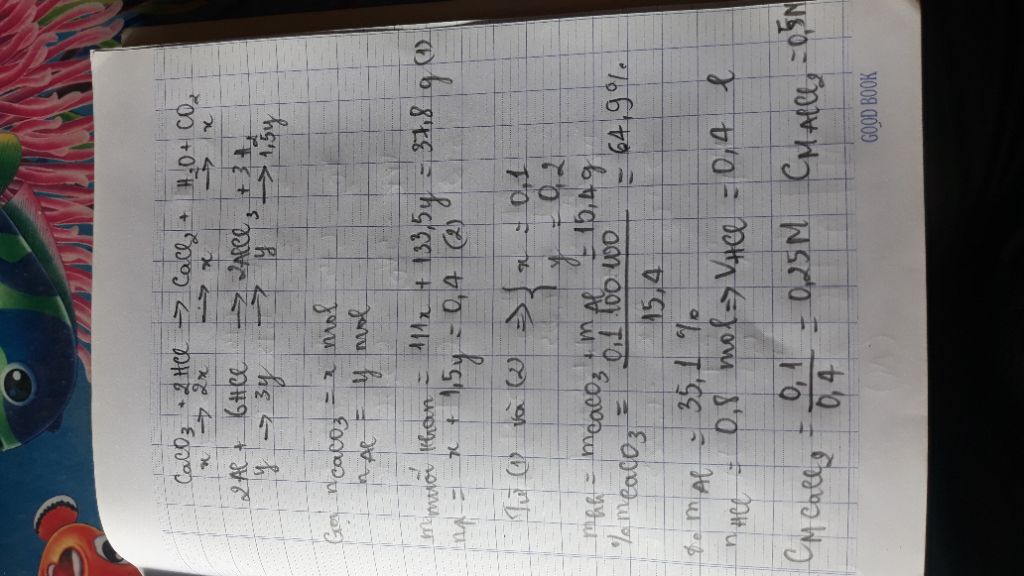 CaCO3 + 2HCl → CaCl2 + H2O + CO2
x → 2x → x → x
2Al + 6HCl → 2AlCl3 + 3H2
y → 3y → y → 1,5y
Gọi nCaCO3 = x mol
nAl = y mol
m muối khan = 111x + 133,5y = 37,8 g (1)
n↑ = x + 1,5y = 0,4 (2)
Từ (1) và (2) ⇒ { x = 0,1
y = 0,2
mhh = mCaCO3 + mAl = 15,4g
% mCaCO3 = 0,1.100.100 / 15,4 = 64,9%
% mAl = 35,1 %
nHCl = 0,8 mol ⇒ VHCl = 0,4 l
CM CaCl2 = 0,1 / 0,4 = 0,25N CM AlCl2 = 0,5N
GOOD BOOK